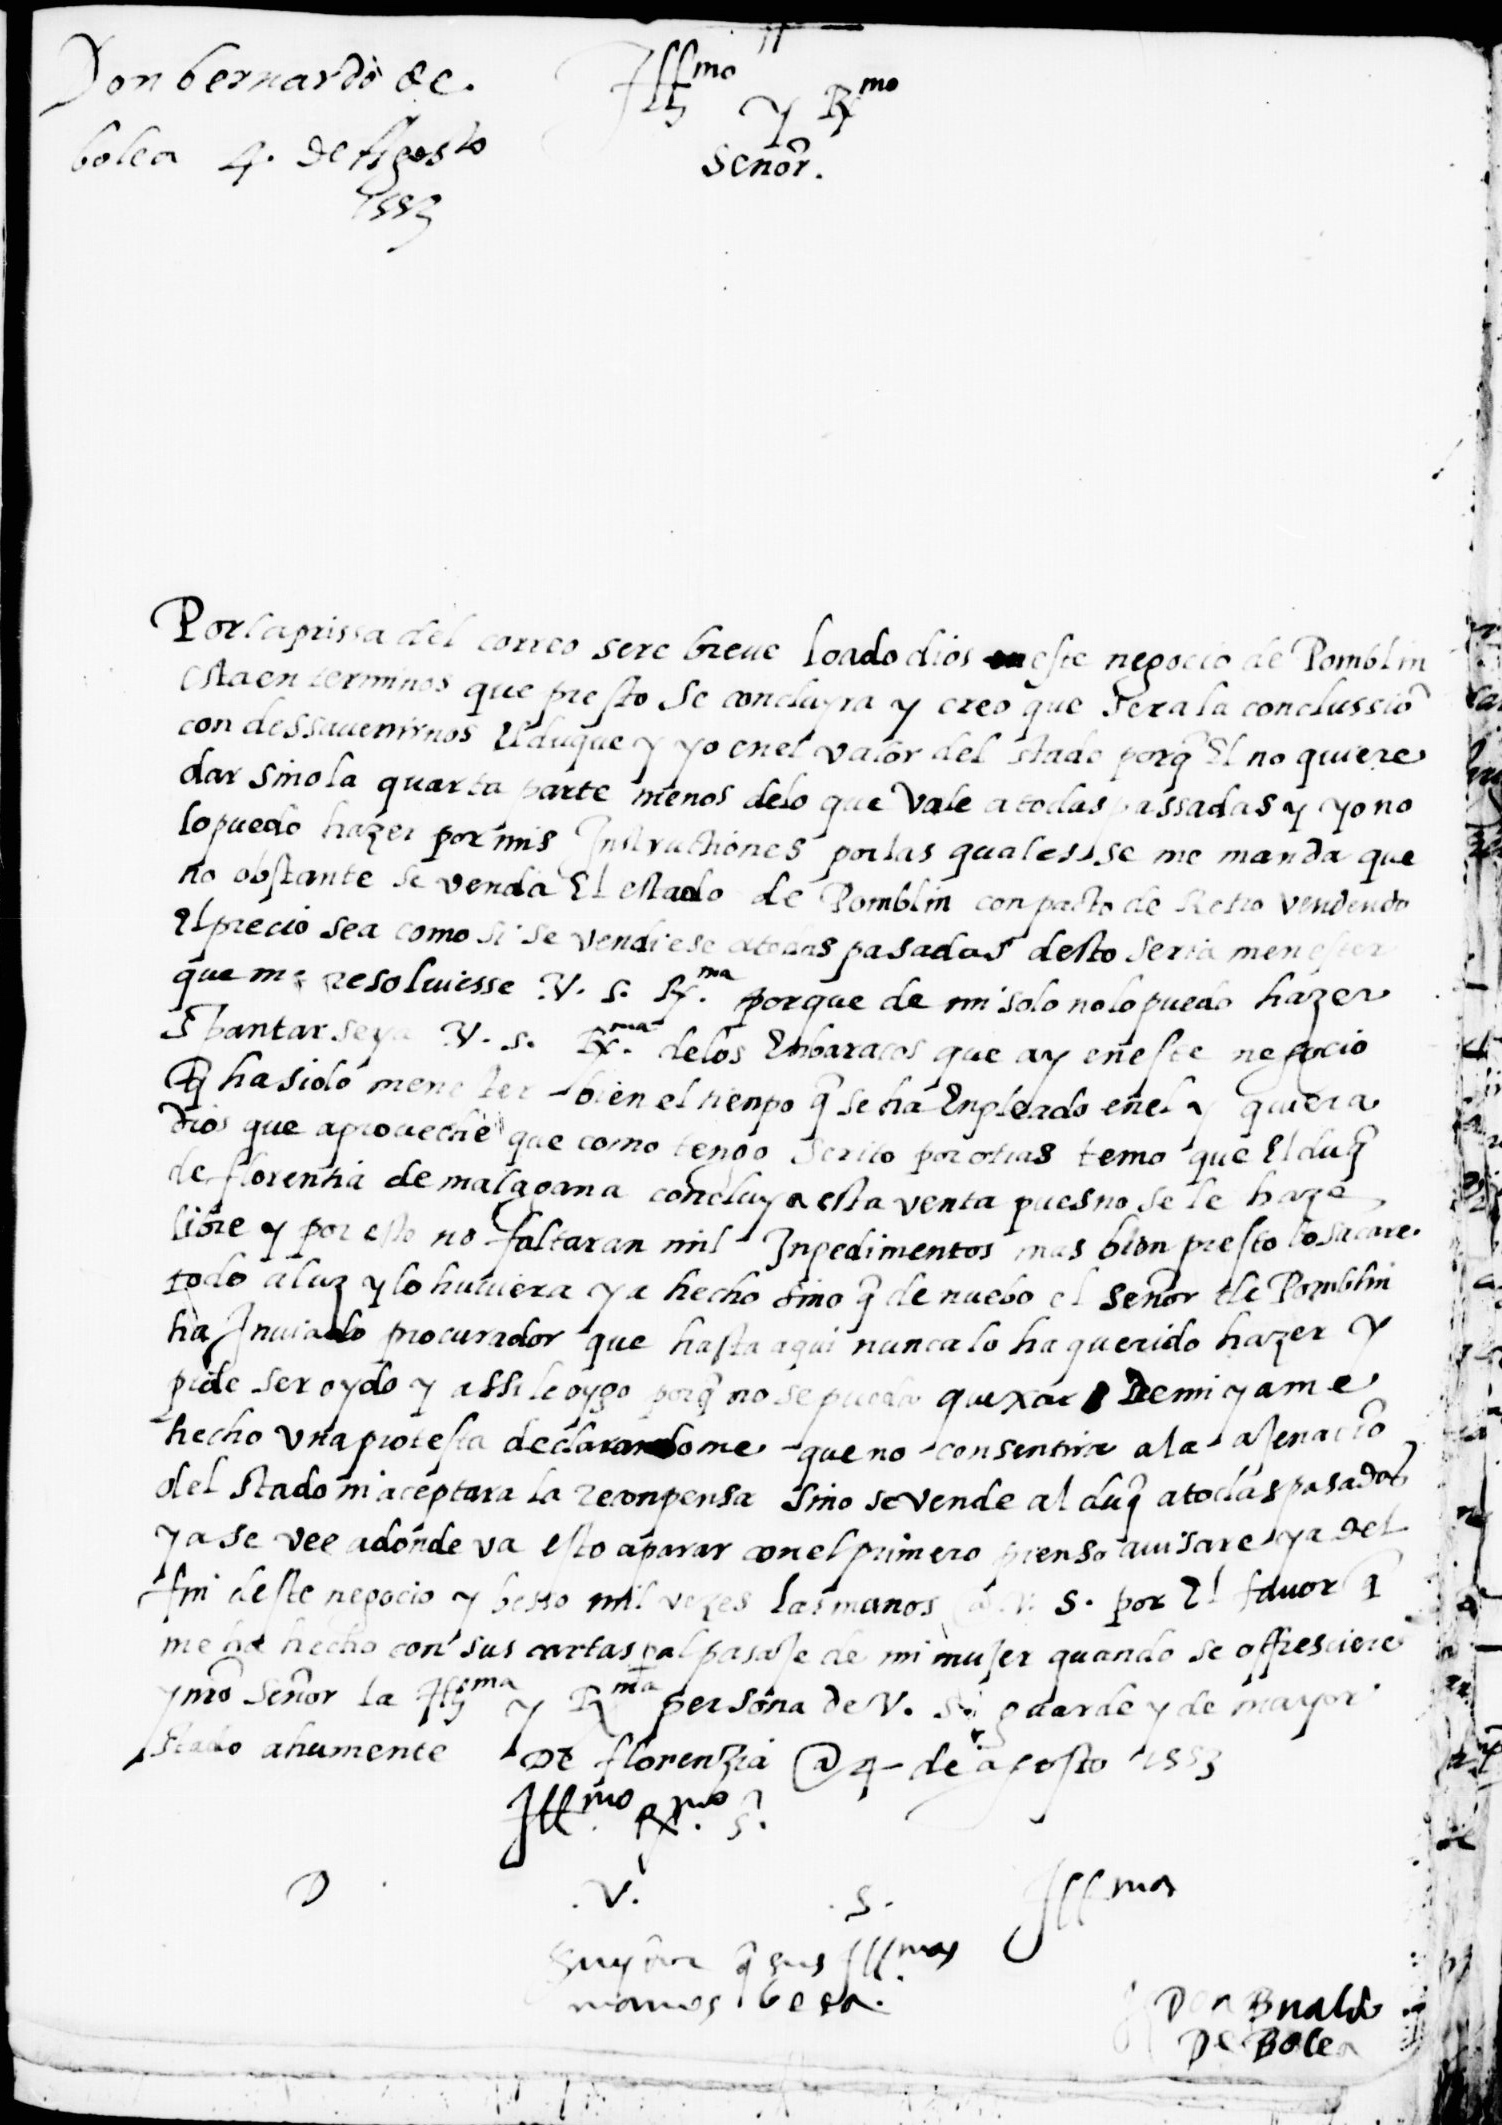 Don bernardo de
bolea 4. de Agosto
1553
Illmo
y Rmo
Señor.
Por la prissa del correo sere breue loado dios este negocio de Pomblin
esta en terminos que presto se concluyra y creo que sera la conclussiō
con dessauenirnos El duque y yo en el valor del stado porq̄ El no quiere
dar sino la quarta parte menos de lo que vale a todas passadas y yo no
lo puedo hazer por mis Instructiones por las quales se me manda que
no obstante se venda El estado de Pomblin con pacto de Retro vendendo
El precio sea como si se vendiese a todas pasadas desto seria menester
que me resoluiesse V. S. R.ma porque de mi solo no lo puedo hazer
Spantarseya V. S. R.ma de los Enbaraços que ay en este negocio
q̄ ha sido menester bien el tienpo q̄ se ha Enpleado en el y quiera
Dios que aproueche que como tengo scrito por otras temo que El duq̄
de florentia de mala gana concluya esta venta pues no se le haze
libre y por esto no faltaran mil Inpedimentos mas bien presto lo sacare
todo a luz y lo huuiera ya hecho sino q̄ de nuebo el señor de Pomblin
ha Inuiado procurador que hasta aqui nunca lo ha querido hazer y
pide ser oydo y assi le oygo porq̄ no se pueda quexar De mi y a me
hecho vna protesta declarandome que no consentira a la alienaciō
del stado ni aceptara la reconpensa sino se vende al duq̄ a todas pasadas
ya se vee a donde va esto a parar con el primero pienso auisare ya del
fin deste negocio y beso mil vezes las manos a V. S. por El fauor q̄
me ha hecho con sus cartas pal pasaje de mi mujer quando se offresciere
y nrō señor la Illma y Rma persona de V. S. guarde y de mayor
Stado ahumente De florenzia @ 4 de agosto 1553
Illmo R.mo S.
D V. S. Illma
q̄ sus Illmas
manos besa.
Don Bnaldo
De Bolea